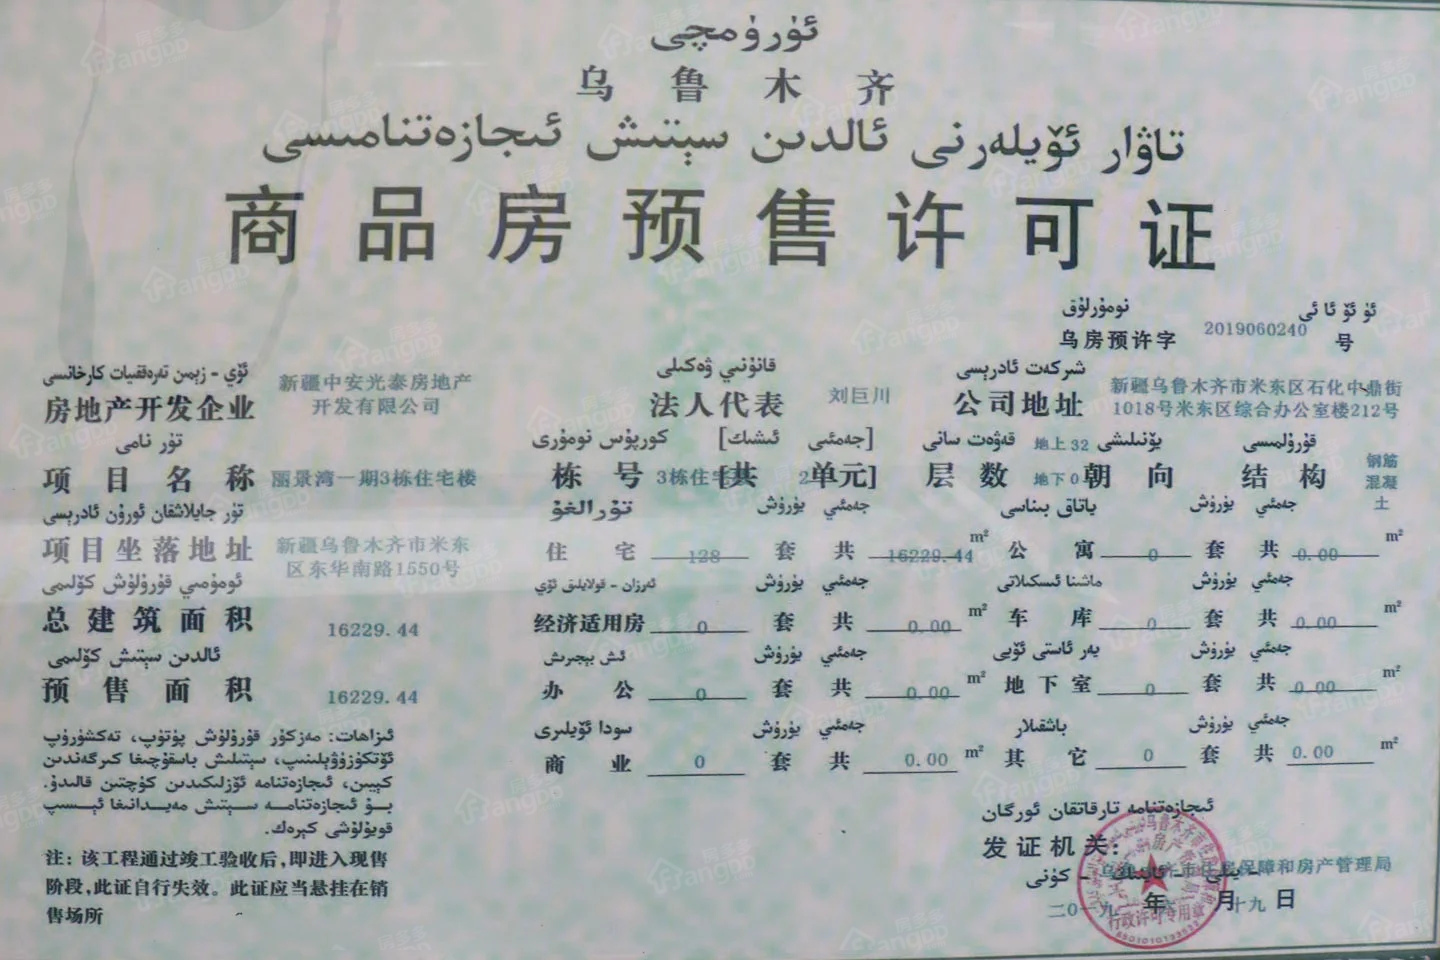 ئۈرۈمچى
乌鲁木齐
تاۋار ئۆيلەرنى ئالدىن سېتىش ئىجازەتنامىسى
商品房预售许可证
ئۈ ئۆ ئا ئى نومۇرلۇق
乌房预许字 2019060240 号
ئۆي - زېمىن تەرەققىيات كارخانىسى
房地产开发企业 新疆中安光泰房地产开发有限公司
قانۇنىي ۋەكىلى
法人代表 刘巨川
شىركەت ئادرېسى
公司地址 新疆乌鲁木齐市米东区石化中鼎街
1018号米东区综合办公室楼212号
تۈر نامى
项目名称 丽景湾一期3栋住宅楼
كورپۇس نومۇرى [جەمئىي ئىشىك]
栋号 3栋住宅 [共 2 单元]
قەۋەت سانى
层数 地上 32 地下 0
يۆنىلىشى
朝向
قۇرۇلمىسى
结构 钢筋混凝土
تۈر جايلاشقان ئورۇن ئادرېسى
项目坐落地址 新疆乌鲁木齐市米东区东华南路1550号
تۇرالغۇ يۈرۈش جەمئىي
住宅 128 套 共 16229.44 m²
ياتاق بىناسى يۈرۈش جەمئىي
公寓 0 套 共 0.00 m²
ئومۇمىي قۇرۇلۇش كۆلىمى
总建筑面积 16229.44
ئەرزان - قولايلىق ئۆي يۈرۈش جەمئىي
经济适用房 0 套 共 0.00 m²
ماشىنا ئىسكىلاتى يۈرۈش جەمئىي
车库 0 套 共 0.00 m²
ئالدىن سېتىش كۆلىمى
预售面积 16229.44
ئىش بېجىرىش يۈرۈش جەمئىي
办公 0 套 共 0.00 m²
يەر ئاستى ئۆيى يۈرۈش جەمئىي
地下室 0 套 共 0.00 m²
سودا ئۆيلىرى يۈرۈش جەمئىي
商业 0 套 共 0.00 m²
باشقىلار يۈرۈش جەمئىي
其它 0 套 共 0.00 m²
ئىزاھات: مەزكۇر قۇرۇلۇش پۈتۈپ، تەكشۈرۈپ
ئۆتكۈزۈۋېلىنىپ، سېتىلىش باسقۇچىغا كىرگەندىن
كېيىن، ئىجازەتنامە ئۆزلىكىدىن كۈچتىن قالىدۇ.
بۇ ئىجازەتنامە سېتىش مەيدانىغا ئېسىپ
قويۇلۇشى كېرەك.
注：该工程通过竣工验收后，即进入现售
阶段，此证自行失效。此证应当悬挂在销
售场所
ئىجازەتنامە تارقاتقان ئورگان
发证机关：
乌鲁木齐市住房保障和房产管理局
- يىلى - ئاينىڭ - كۈنى
二〇一九 年 月 十九 日
行政许可专用章